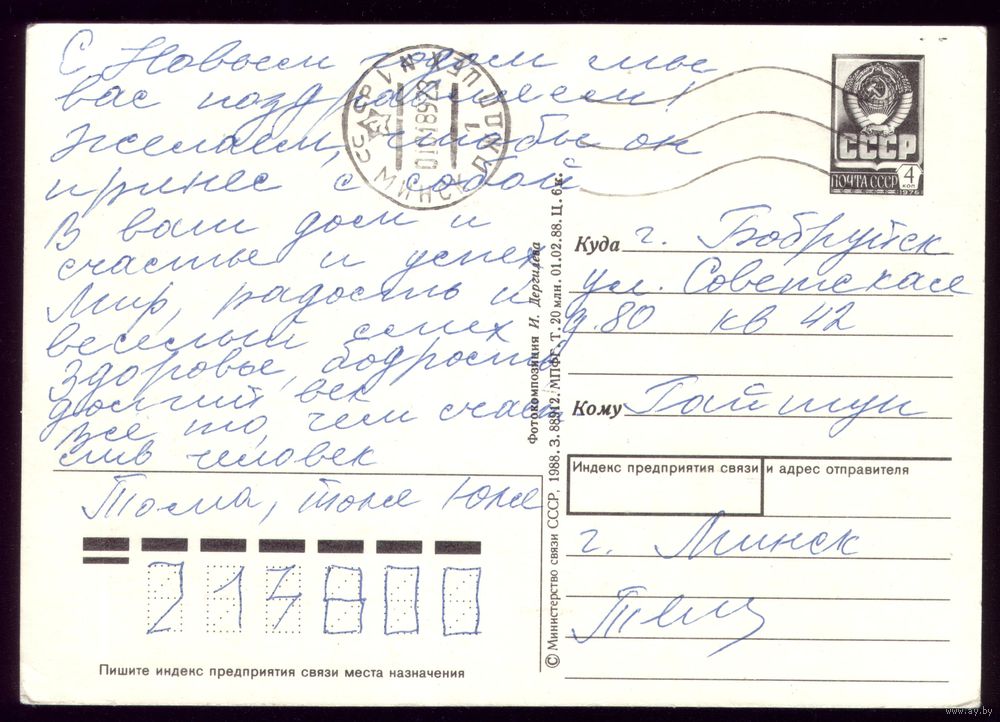 С Новым годом мы
вас поздравляем!
Желаем, чтобы он
принес с собой
В ваш дом и
счастье и успех
Мир, радость и
веселый смех
Здоровье, бодрость
долгий век
Все то, чем счаст
лив человек
Тома, тоже Юже
СССР МИНСК
СССР
ПОЧТА СССР
4
коп
1976
Куда г. Бобруйск
ул. Советская
д. 80 кв 42
Кому
Индекс предприятия связи и адрес отправителя
г. Минск
213800
Пишите индекс предприятия связи места назначения
Фотокомпозиция И. Дергилёва
© Министерство связи СССР, 1988. З. 88912. МПФГ. Т. 20 млн. 01.02.88. Ц. 6 к.
www.ay.by